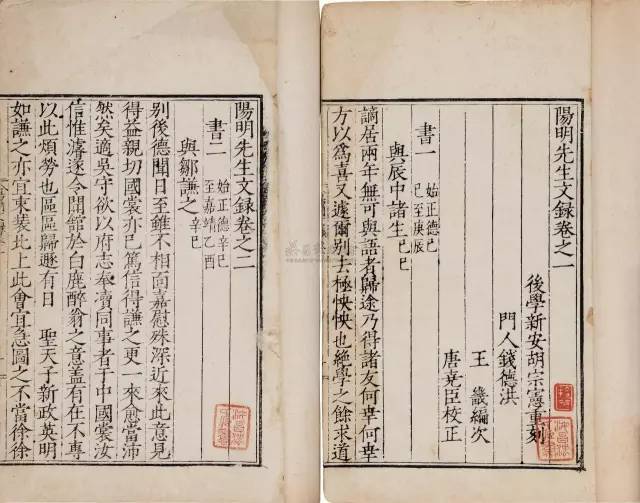 陽明先生文録卷之一
後學新安胡宗憲重刻
門人錢德洪
王畿編次
唐堯臣校正
書一
始正德己
巳至庚辰
與辰中諸生
己巳
謫居兩年無可與語者歸途乃得諸友何幸何幸
方以為喜又遽爾別去極怏怏也絶學之餘求道
陽明先生文録卷之二
書二
始正德辛巳
至嘉靖乙酉
與鄒謙之
辛巳
別後德聞日至雖不相面嘉慰殊深近來此意見
得益親切國裳亦已篤信得謙之更一來愈當沛
然矣適吳守欲以府志奉瀆同事者于中國裳汝
信惟濬遂令開館於白鹿醉翁之意蓋有在不專
以此煩勞也區區歸遯有日聖天子新政英明
如謙之亦宜束裝北上此會宜急圖之不當徐徐